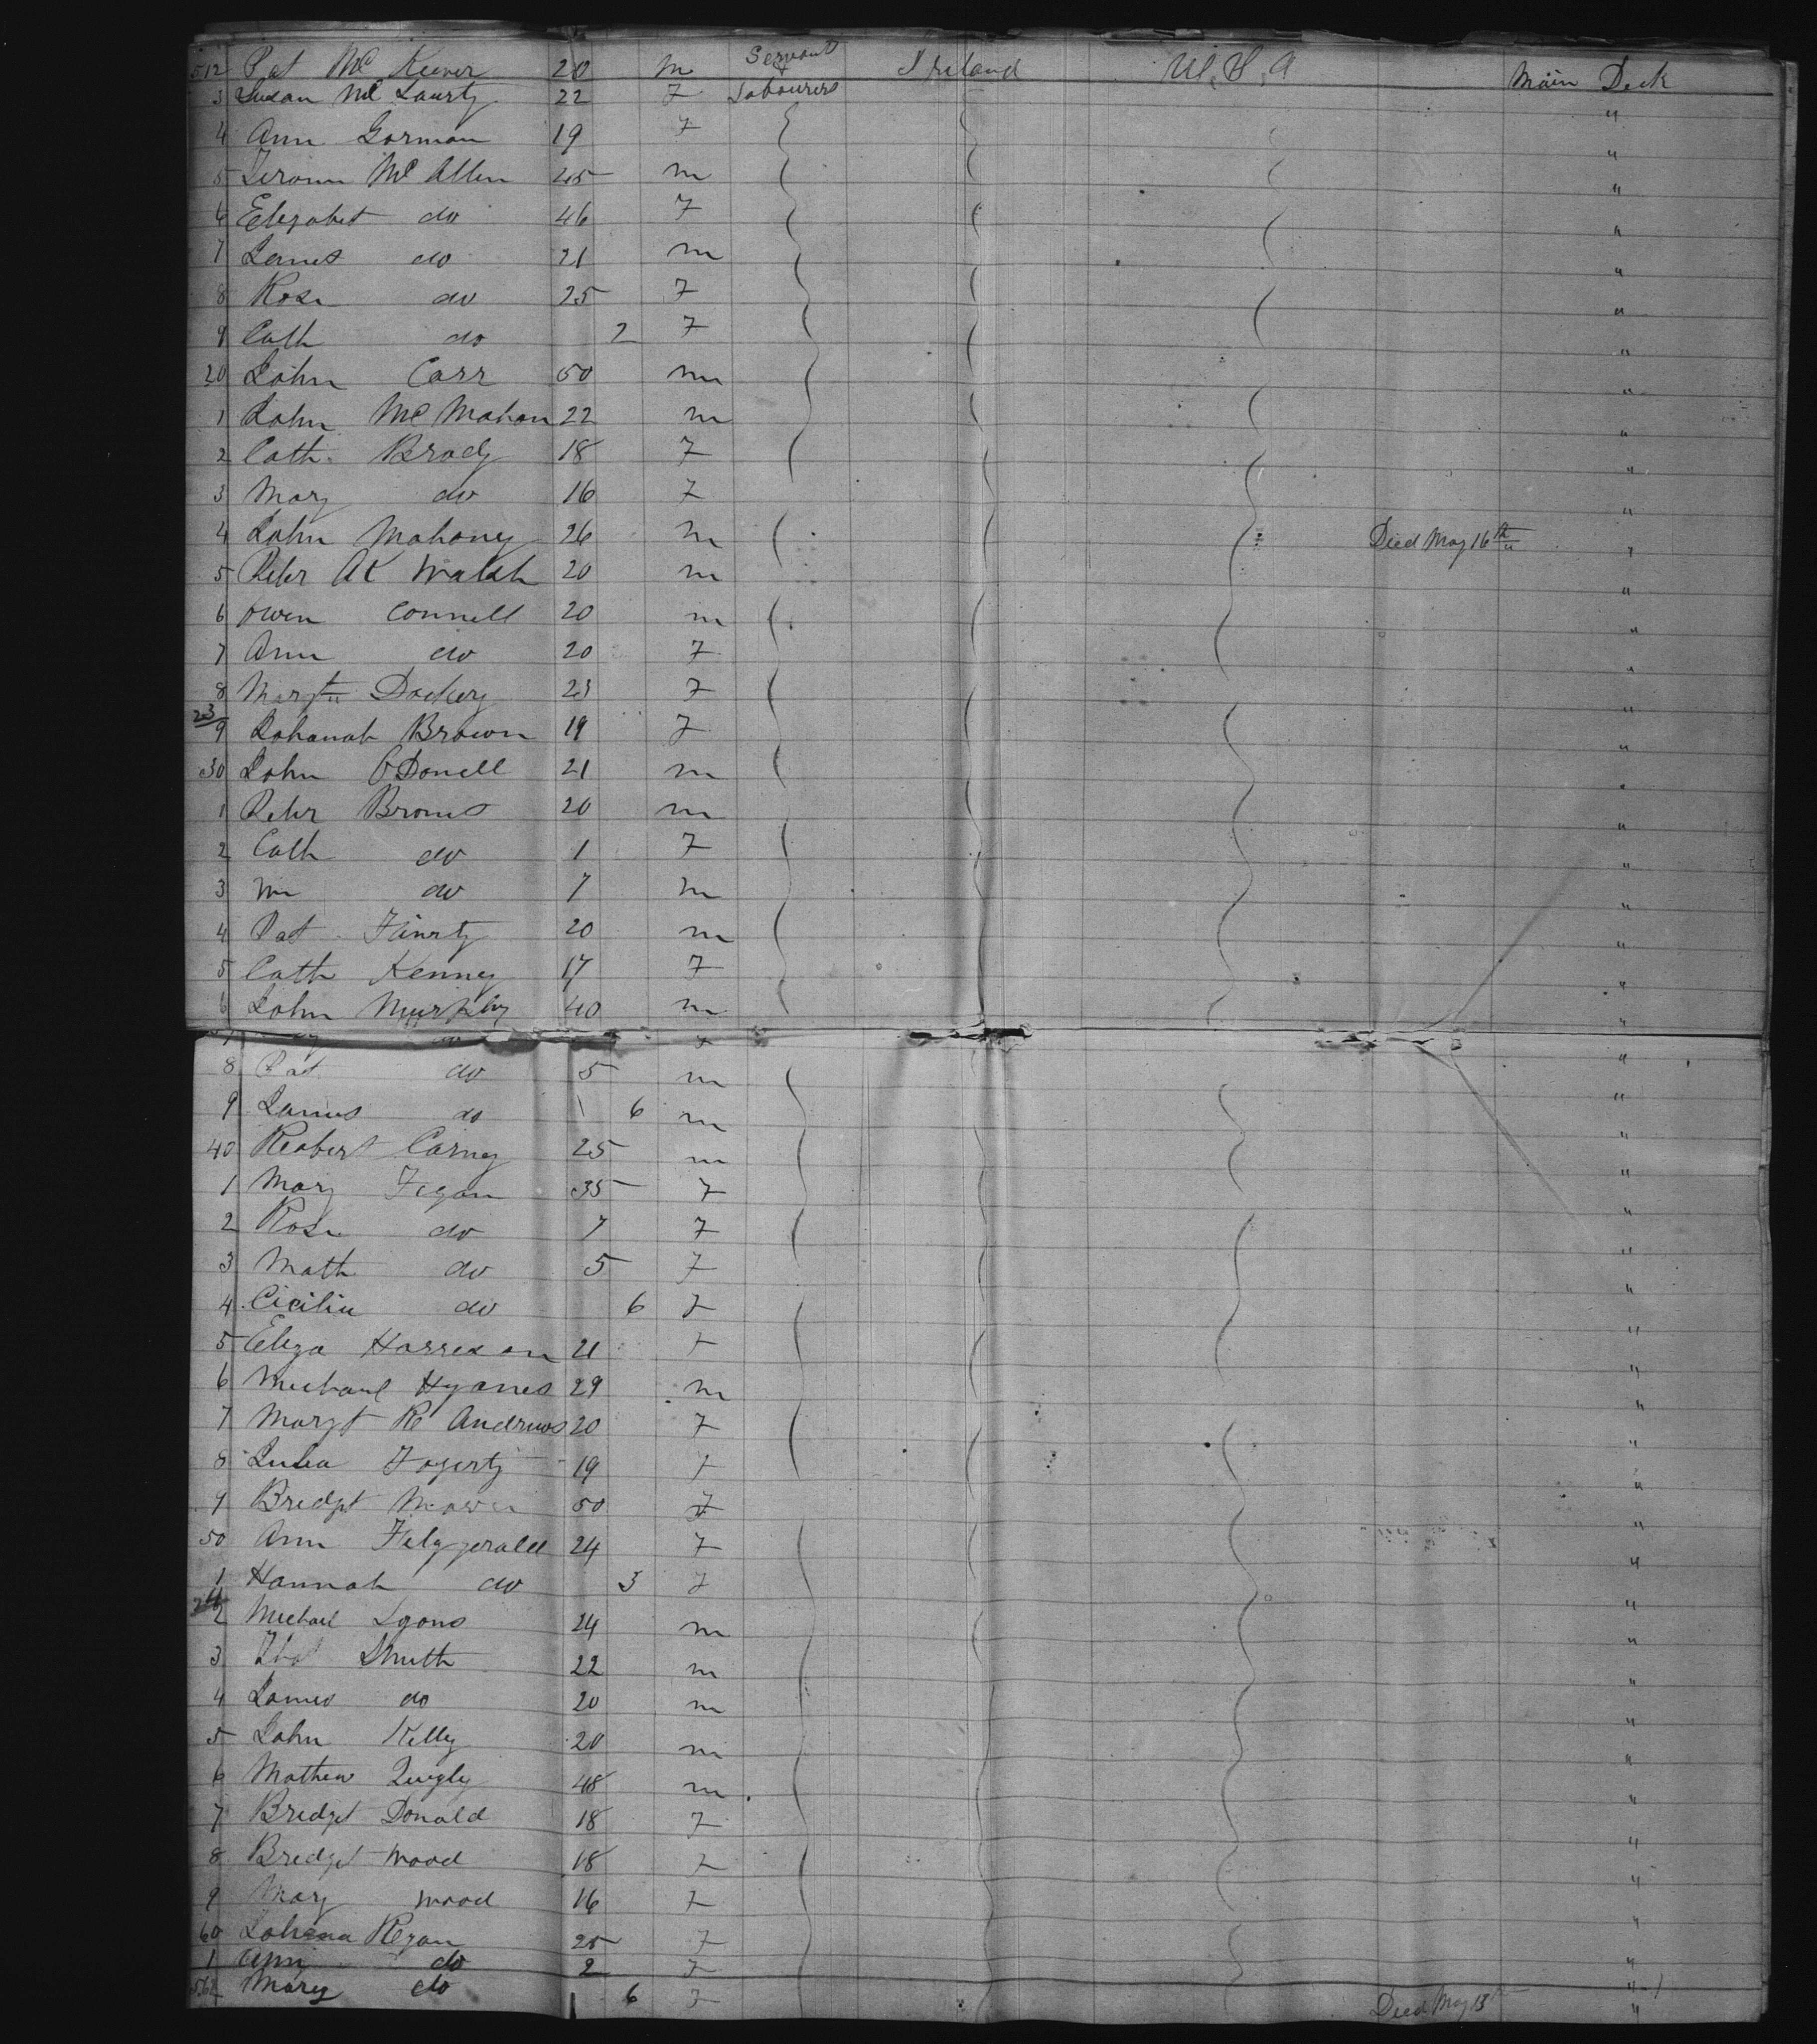 512 Pat Mc Keever 20 m Servants & Ireland U, S, A Main Deck
3 Susan Mc Laurty 22 F Labourers "
4 Ann Gorman 19 F "
5 Mc Allen 45 m "
6 Elizabet do 46 F "
7 James do 21 m "
8 Rose do 25 F "
9 Cath do 2 F "
20 John Carr 50 m "
1 John Mc Mahon 22 m "
2 Cath. Brady 18 F "
3 Mary do 16 F "
4 John Mahoney 26 m Died May 16th "
5 Peter Walsh 20 m "
6 Owen Connell 20 m "
7 Ann do 20 F "
8 Margt Dockery 23 F "
23
9 Johanah Brown 19 F "
30 John O Donell 21 m "
1 Peter 20 m "
2 Cath do 1 F "
3 Wm do 7 m "
4 Pat 20 m "
5 Cath Kenney 17 F "
6 John Murphy 40 m "
7 do F "
8 Pat do 5 m "
9 James do 1 6 m "
40 Robert Carney 25 m "
1 Mary Fegan 35 F "
2 Rose do 7 F "
3 Math do 5 F "
4 Cicilia do 6 F "
5 Eliza Harrison 21 F "
6 Michael Hyanes 29 m "
7 Margt Andrews 20 F "
8 Julia Fogerty 19 F "
9 Bridget 50 F "
50 Ann Fitzgerald 24 F "
1 Hannah do 3 F "
24
2 Michael Lyons 24 m "
3 Thos Smith 22 m "
4 James do 20 m "
5 John Kelly 20 m "
6 Mathew Quigly 48 m "
7 Bridget Donald 18 F "
8 Bridget Wood 18 F "
9 Mary Wood 16 F "
60 Johana Regan 25 F "
1 Ann do 2 F "
562 Mary do 1 6 F Died May 13th "